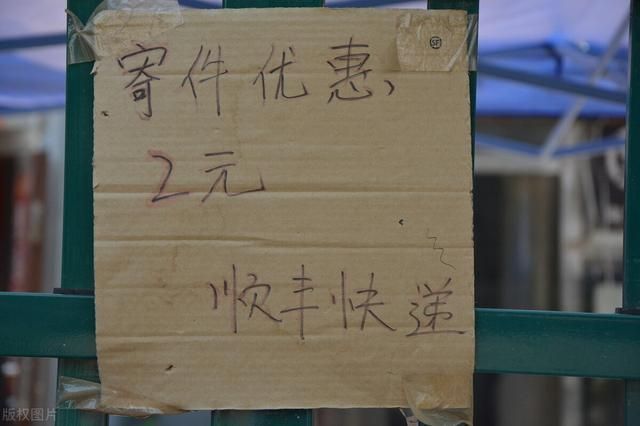 寄件优惠，
2元
顺丰快递
SF
版权图片